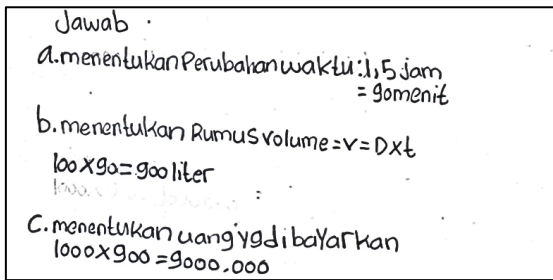 Jawab .
a. menentukan Perubahan waktu : 1,5 jam
= 90 menit
b. menentukan Rumus volume = v = D x t
100 x 90 = 900 liter
1000
:
C. menentukan uang yg dibayarkan
1000 x 900 = 9000.000